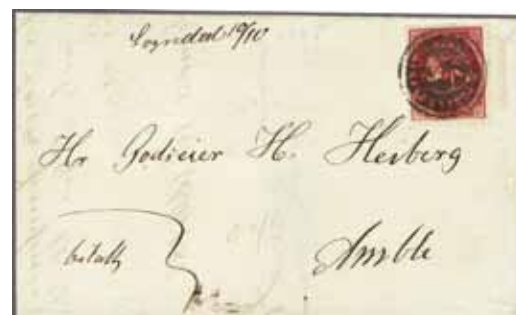 Sogndal 19/10
Hr Godseier H. Heiberg
betalt Amble